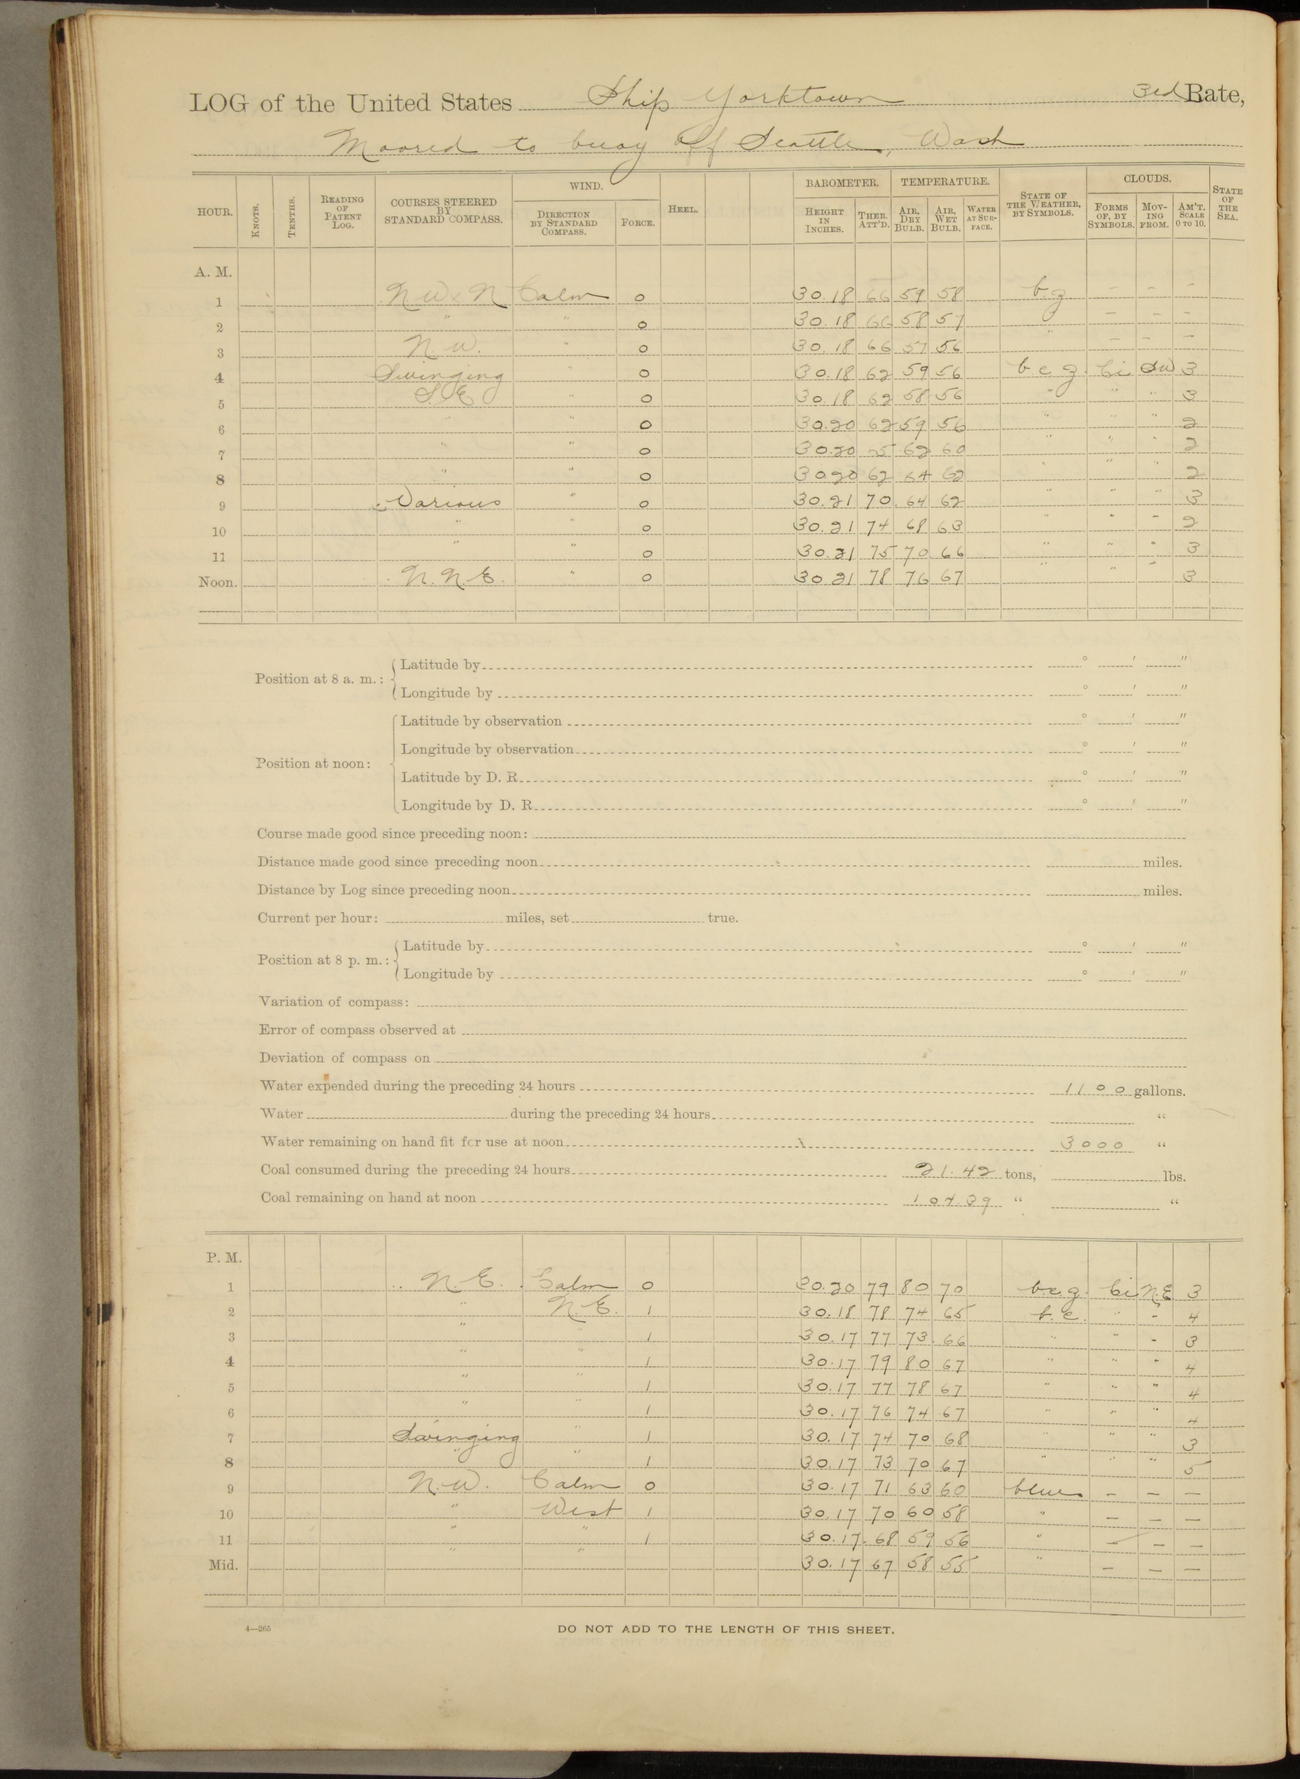 LOG of the United States Ship Yorktown 3rd Rate,
Moored to buoy off Seattle, Wash
HOUR. KNOTS. TENTHS. READING OF PATENT LOG. COURSES STEERED BY STANDARD COMPASS. WIND. DIRECTION BY STANDARD COMPASS. FORCE. HEEL. BAROMETER. HEIGHT IN INCHES. THER. ATT'D. TEMPERATURE. AIR, DRY BULB. AIR, WET BULB. WATER AT SURFACE. STATE OF THE WEATHER, BY SYMBOLS. CLOUDS. FORMS OF, BY SYMBOLS. MOVING FROM. AM'T. SCALE 0 TO 10. STATE OF THE SEA.
A. M.
1 N W x N Calm 0 30.18 66 59 58 b.g — — —
2 " " 0 30.18 66 58 57 — — —
3 N.W. " 0 30.18 66 57 56 " — — —
4 Swinging " 0 30.18 62 59 56 b c g. Ci SW 3
5 S.E " 0 30.18 62 58 56 " " " 3
6 " " 0 30.20 62 59 56 " " " 2
7 " " 0 30.20 62 60 " " " 2
8 " " 0 30.20 62 64 62 " " " 2
9 Various " 0 30.21 70 64 62 " " " 3
10 " " 0 30.21 74 68 63 " " " 2
11 " " 0 30.21 75 70 66 " " " 3
Noon. N.N.E. " 0 30 21 78 76 67 " " " 3
Position at 8 a. m.: Latitude by ° ′ ″
Longitude by ° ′ ″
Position at noon: Latitude by observation ° ′ ″
Longitude by observation ° ′ ″
Latitude by D. R. ° ′ ″
Longitude by D. R. ° ′ ″
Course made good since preceding noon:
Distance made good since preceding noon miles.
Distance by Log since preceding noon miles.
Current per hour: miles, set true.
Position at 8 p. m.: Latitude by ° ′ ″
Longitude by ° ′ ″
Variation of compass:
Error of compass observed at
Deviation of compass on
Water expended during the preceding 24 hours 1100 gallons.
Water during the preceding 24 hours "
Water remaining on hand fit for use at noon 3000 "
Coal consumed during the preceding 24 hours 21.42 tons, lbs.
Coal remaining on hand at noon " "
P. M.
1 N.E. Calm 0 30.20 79 80 70 bc.g. Ci N.E 3
2 " N.E. 1 30.18 78 74 65 b.c. " " 4
3 " " 1 30.17 77 73 66 " " " 3
4 " " 1 30.17 79 80 67 " " " 4
5 " " 1 30.17 77 78 67 " " " 4
6 " " 1 30.17 76 74 67 " " " 4
7 Swinging " 1 30.17 74 70 68 " " " 3
8 " " 1 30.17 73 70 67 " " " 5
9 N.W. Calm 0 30.17 71 63 60 blue — — —
10 " West 1 30.17 70 60 58 " — — —
11 " " 1 30.17 68 59 56 " — — —
Mid. " " 30.17 67 58 55 " — — —
4—265 DO NOT ADD TO THE LENGTH OF THIS SHEET.